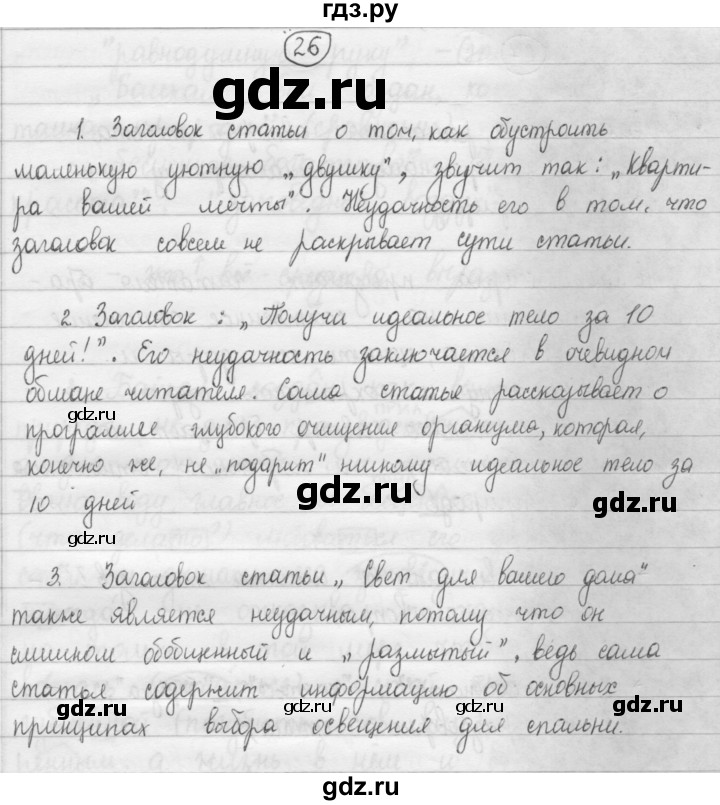 гдз.ру
26
1. Заголовок статьи о том, как обустроить
маленькую уютную „двушку", звучит так: „Кварти-
ра вашей мечты". Неудачность его в том, что
заголовок совсем не раскрывает сути статьи.
2. Заголовок: „Получи идеальное тело за 10
дней!". Его неудачность заключается в очевидном
обмане читателя. Сама статья рассказывает о
программе глубокого очищения организма, которая,
конечно же, не „подарит" никому идеальное тело за
10 дней
3. Заголовок статьи „Свет для вашего дома"
также является неудачным, потому что он
слишком обобщенный и „размытый", ведь сама
статья содержит информацию об основных
принципах выбора освещения для спальни.
gdz.ru
gdz.ru
gdz.ru
gdz.ru
gdz.ru
gdz.ru
gdz.ru
gdz.ru
gdz.ru
gdz.ru